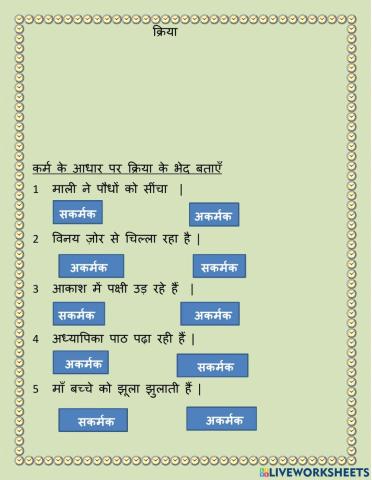 क्रिया
कर्म के आधार पर क्रिया के भेद बताएँ
1 माली ने पौधों को सींचा |
सकर्मक अकर्मक
2 विनय ज़ोर से चिल्ला रहा है |
अकर्मक सकर्मक
3 आकाश में पक्षी उड़ रहे हैं |
सकर्मक अकर्मक
4 अध्यापिका पाठ पढ़ा रही हैं |
अकर्मक सकर्मक
5 माँ बच्चे को झूला झुलाती हैं |
सकर्मक अकर्मक
LIVEWORKSHEETS